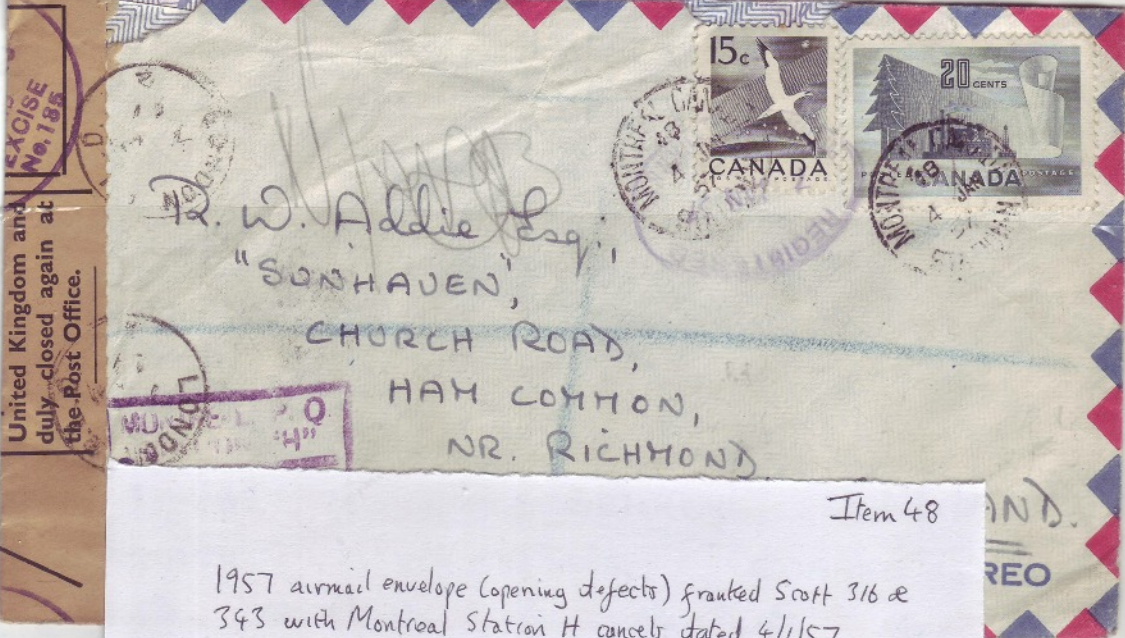 EXCISE
No. 185
United Kingdom and
duly closed again at
the Post Office.
LONDON
15c
CANADA
20 CENTS
POSTAGE
CANADA
MONTREAL
4 JAN
57
REGISTERED
MONTREAL
4 JAN
57
R. W. Addie Esq.,
"SUNHAVEN",
CHURCH ROAD,
HAM COMMON,
NR. RICHMOND
AND.
REO
LONDON
P.Q
"H"
Item 48
1957 airmail envelope (opening defects) franked Scott 316 &
343 with Montreal Station H cancels dated 4/1/57